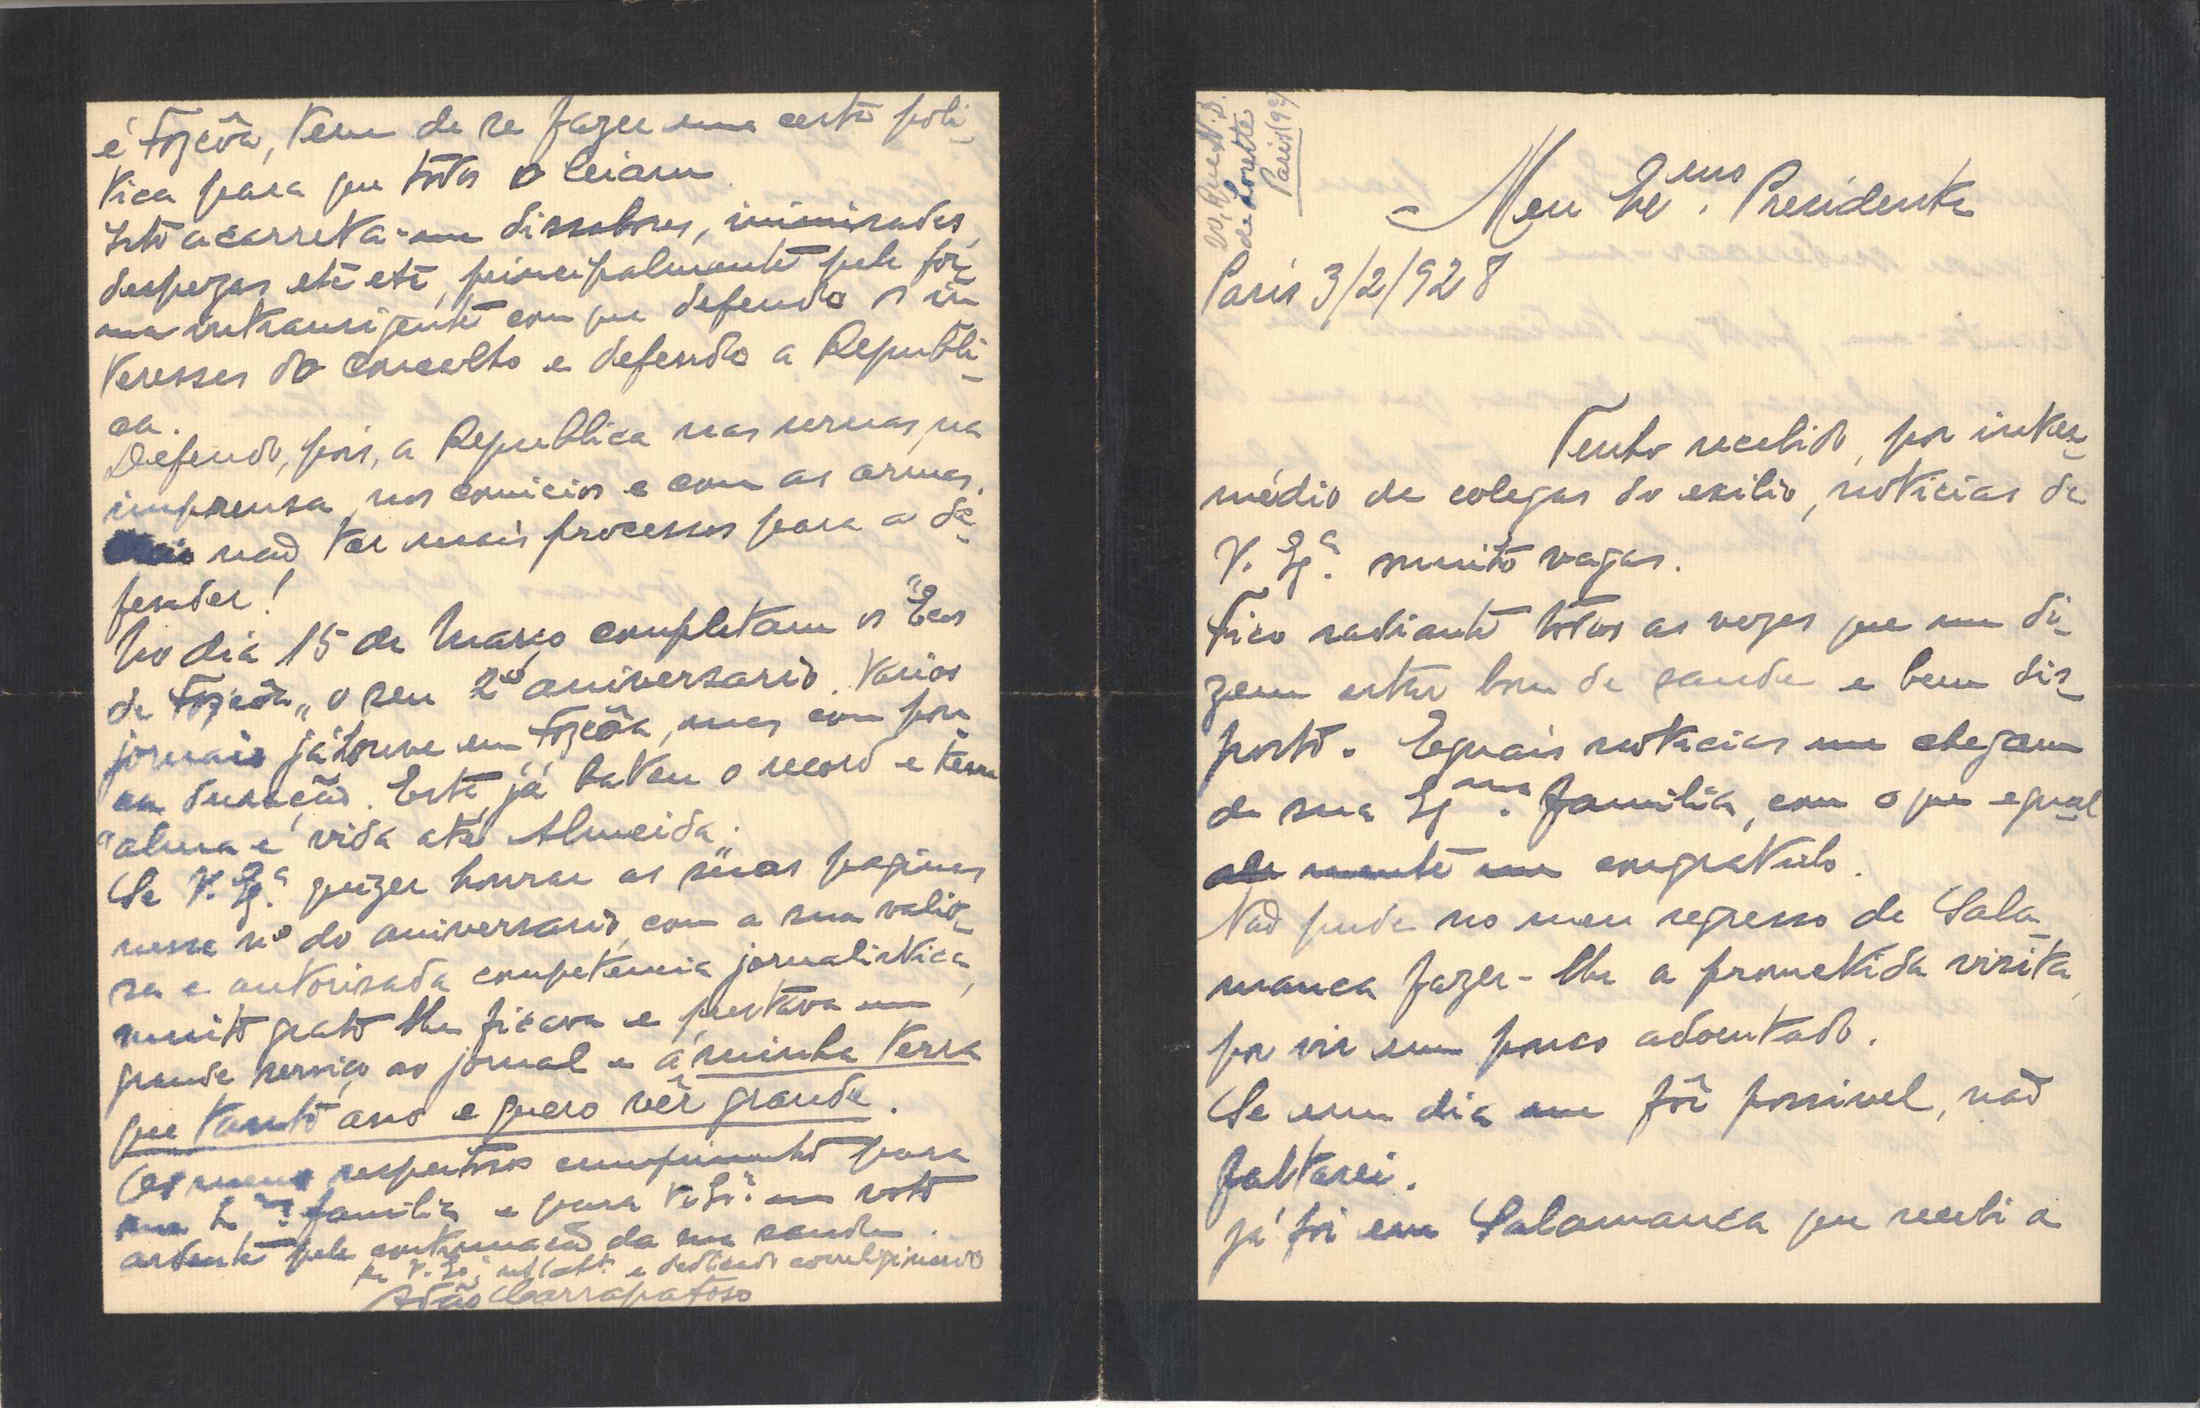 de Lorette
Paris (9e)
Meu Exmo. Presidente
Paris 3/2/928
Tenho recebido, por inter-
médio de colegas do exilio, noticias de
V. Exª. muito vagas.
Fico radiante tôdas as vezes que me di-
zem estar bom de saude e bem dis-
posto. Eguais noticias me chegam
de sua Exma. familia, com o que egual
mente me congratulo.
Não pude no meu regresso de Sala-
manca fazer-lhe a prometida visita,
por vir um pouco adoentado.
Se um dia me fôr possivel, não
faltarei.
Já foi em Salamanca que recebi a
é Fozcôa, tem de se fazer uma certa poli-
tica para que todos o leiam
Isto acarreta-me dissabores, inimisades,
despezas etc etc, principalmente pela fór-
ma intransigente com que defendo os in
teresses do concelho e defendo a Republi-
ca.
Defendo, pois, a Republica nas urnas, na
imprensa, nos comicios e com as armas.
não ter mais processos para a de-
fender!
No dia 15 de Março completam os "Ecos
de Fozcôa" o seu 2º aniversario. Varios
jornais já houve em Fozcôa, mas com pou
ca duração. Este, já bateu o record e tem
"alma e vida até Almeida".
Se V. Exª. quizer honrar as suas paginas
nesse nº do aniversario, com a sua valio-
sa e autorisada competencia jornalistica,
muito grato lhe ficava e prestava um
grande serviço ao jornal e á minha terra
que tanto amo e quero vêr grande.
Os meus respeitosos cumprimentos para
sua Exma. familia e para V. Exª. um voto
ardente pela continuação da sua saude.
De V. Exª. e dedicado correligionario
Adão Carrapatoso